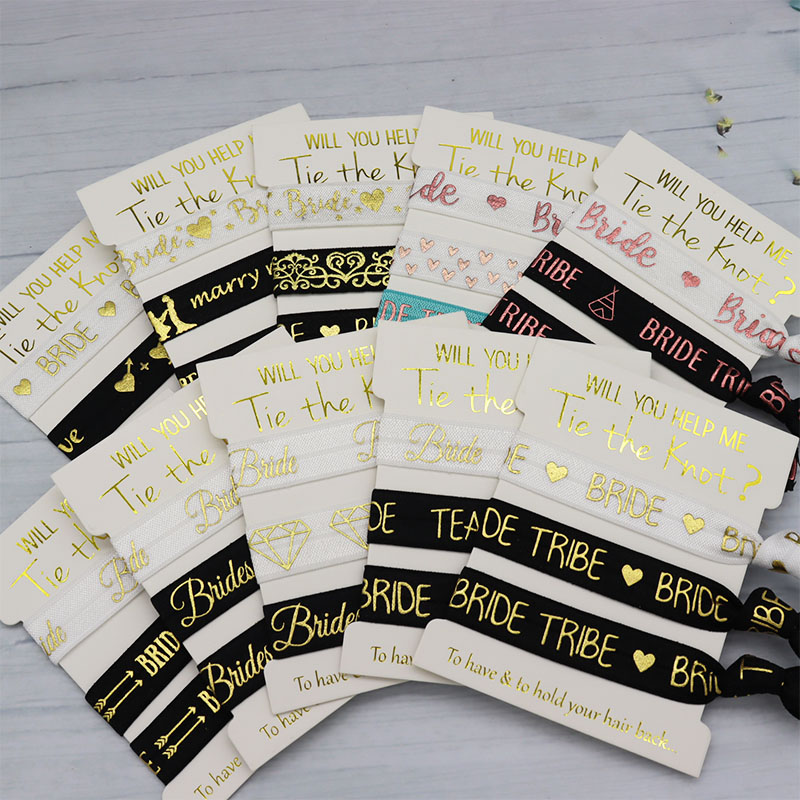 WILL YOU HELP ME
Tie the Knot
BRIDE
WILL YOU HELP
Tie the Kno
Bride Bri
marry
WILL YOU HELP
Tie the Kn
Bride
WILL YOU HELP ME
Tie the
Bride
BRIDE
WILL YOU HELP ME
Tie the Knot?
Bride Bride
TRIBE BRIDE TRIBE
TRIBE BRIDE
WILL YOU
Tie the
Bride
BRID
To have
WILL YOU HELP
Tie the
Bride
Brides
Brides
To have
WILL YOU HELP
Tie the Kn
Bride
Brides
To have &
WILL YOU HELP
Tie the
Bride
DE TEA
BRIDE
To have
WILL YOU HELP ME
Tie the Knot?
DE BRIDE BRID
DE TRIBE BRIDE TRIBE
BRIDE TRIBE BRID T
To have & to hold your hair back..